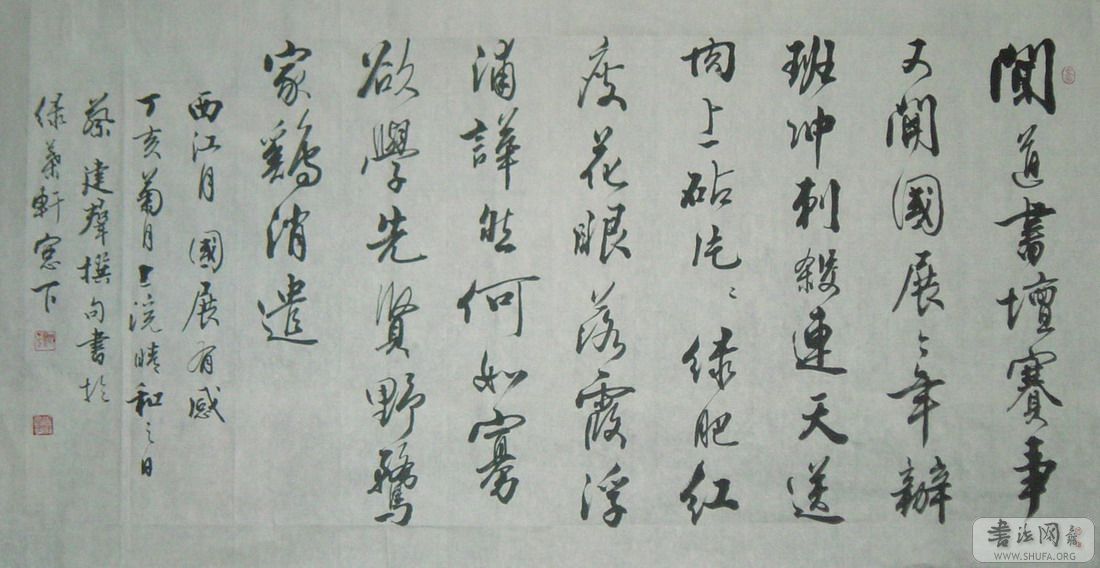 聞道書壇賽事
又聞國展々年辦
班冲刺殺連天送
肉上砧片々绿肥红
瘦花眼落霞浮
浦譁然何如寡
欲學先賢野鶩
家鷄消遣
西江月 國展有感
丁亥菊月上浣晴和之日
蔡建聲撰句書於
緑葉軒窓下
書法网
WWW.SHUFA.ORG